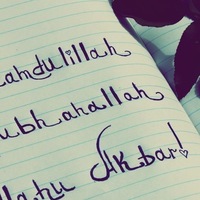 amdulillah
ubhanallah
llahu Akbar!